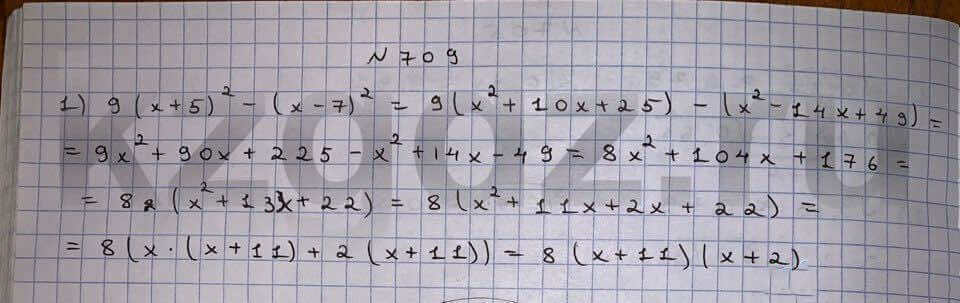 N 709
1) 9(x+5)² - (x-7)² = 9(x²+10x+25) - (x²-14x+49) =
= 9x²+90x+225-x²+14x-49 = 8x²+104x+176 =
= 8 (x²+13x+22) = 8(x²+11x+2x+22) =
= 8(x·(x+11)+2(x+11)) = 8(x+11)(x+2)
kzgdz.ru